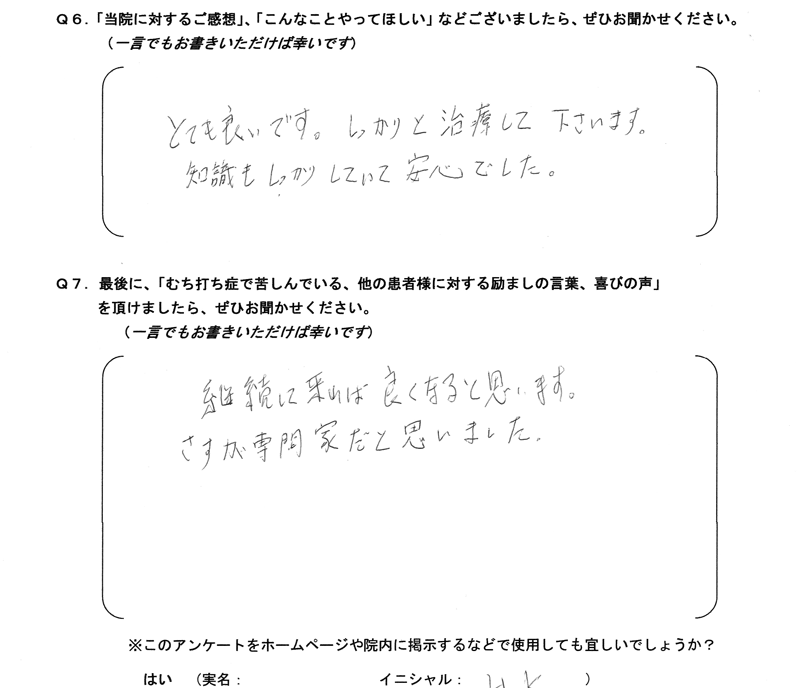 Q6．「当院に対するご感想」、「こんなことやってほしい」などございましたら、ぜひお聞かせください。
（一言でもお書きいただけば幸いです）
とても良いです。しっかりと治療して下さいます。
知識もしっかりしていて安心でした。
Q7．最後に、「むち打ち症で苦しんでいる、他の患者様に対する励ましの言葉、喜びの声」
を頂けましたら、ぜひお聞かせください。
（一言でもお書きいただけば幸いです）
継続に来れば良くなると思います。
さすが専門家だと思いました。
※このアンケートをホームページや院内に掲示するなどで使用しても宜しいでしょうか？
はい （実名： イニシャル： ）